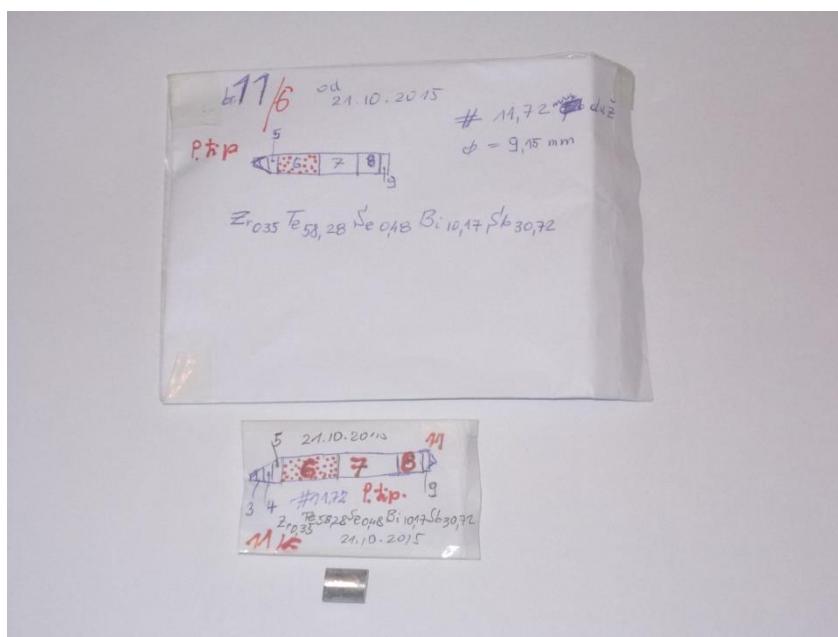 br 11/6 od
21.10.2015
# 11,72 mm duž
P.tip
ϕ = 9,15 mm
5
6 7 8
9
Zr035 Te58,28 Se0,48 Bi10,17 Sb30,72
5 21.10.2015 11
6 7 8
3 4 #11,72 P.tip. 9
Zr0,35 Te58,28 Se0,48 Bi10,17 Sb30,72
11/6 21.10.2015